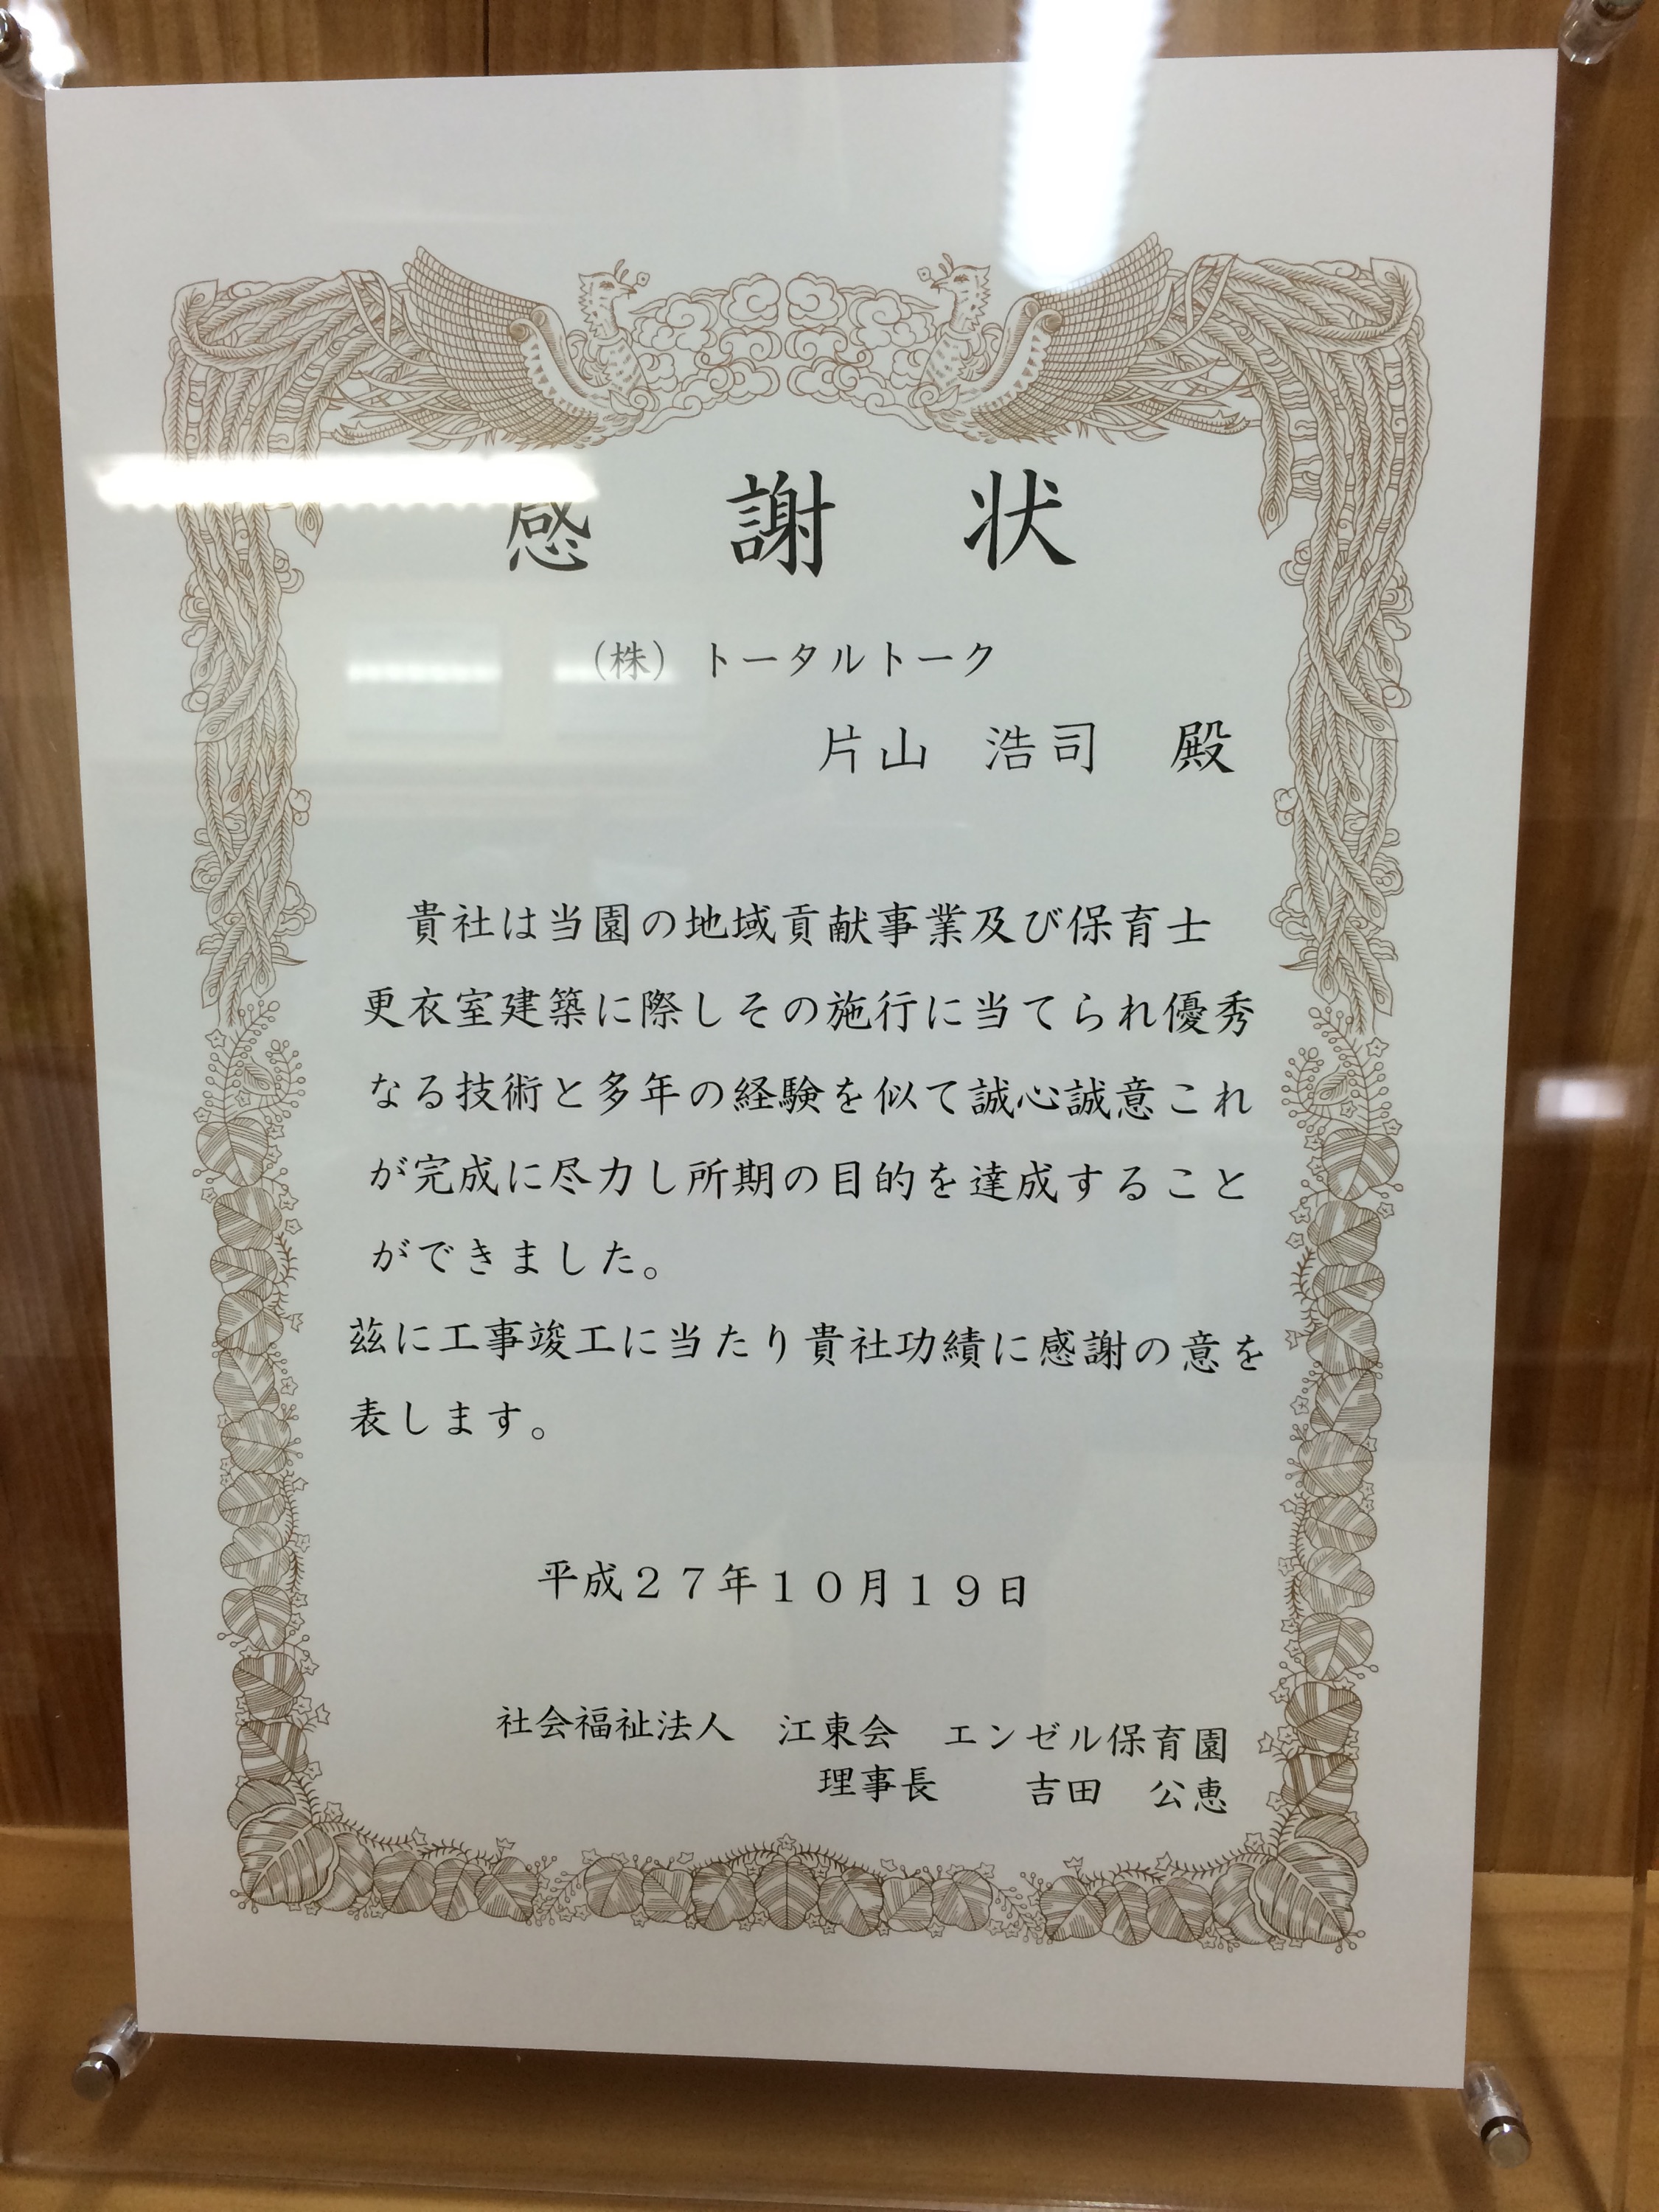 感　謝　状
（株）　トータルトーク
片山　浩司　殿
貴社は当園の地域貢献事業及び保育士
更衣室建築に際しその施行に当てられ優秀
なる技術と多年の経験を似て誠心誠意これ
が完成に尽力し所期の目的を達成すること
ができました。
茲に工事竣工に当たり貴社功績に感謝の意を
表します。
平成２７年１０月１９日
社会福祉法人　江東会　エンゼル保育園
理事長　　吉田　公恵